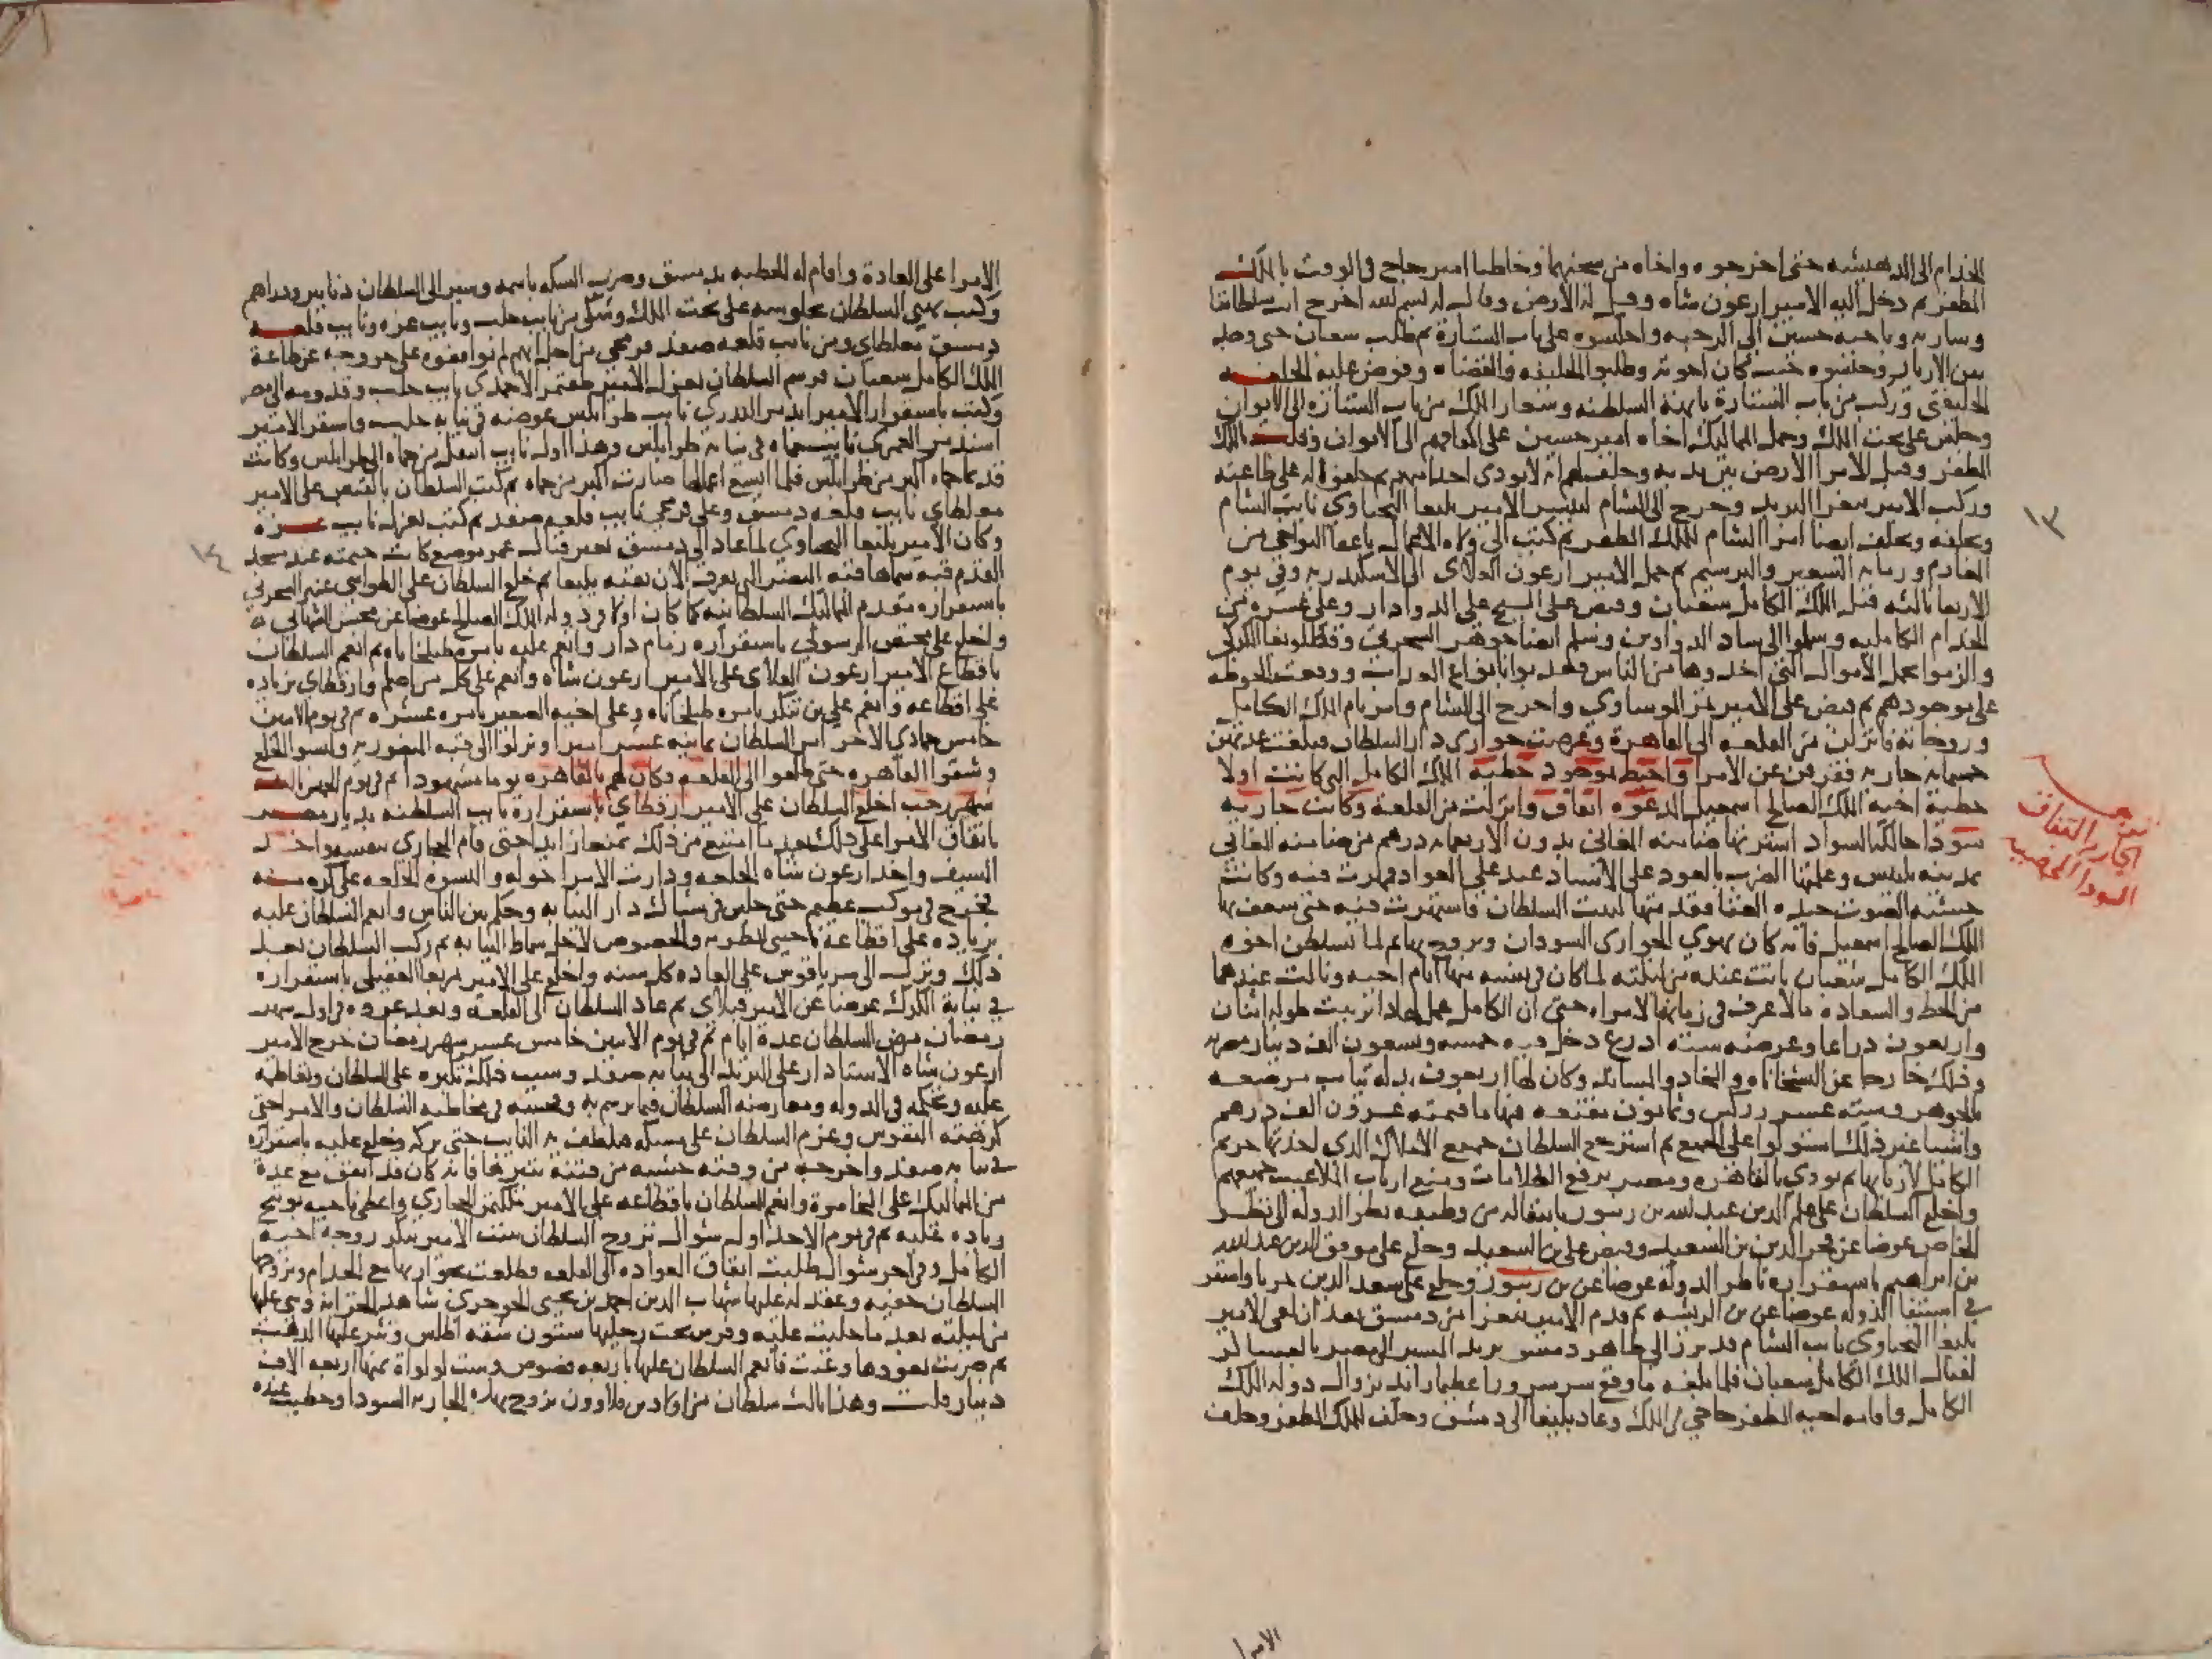 الخدام الى الدهيشه حتى اخرجوه واخاه من سجنهما وخاطبا امير حاج فى الوقت بالملك
المظفر ثم دخل اليه الامير ارغون شاه وقبل له الارض وقال له بسم الله اخرج انت سلطاننا
وسار به وباخيه حسين الى الرحبه واجلسوه على باب الستارة ثم طلب شعبان حتى وجد
بين الازيار وحبسوه حيث كان اخوته وطلبوا الخليفه والقضاه وفوض عليه الخلعه
الخليفتى وركب من باب الستارة بابهة السلطنه وشعار الملك من باب الستاره الى الايوان
وجلس على تخت الملك وحمل المماليك اخاه امير حسين على اكتافهم الى الايوان ولقب بالملك
المظفر وقبل الامرا الارض بين يديه وحلف لهم انه لا يودى احدا منهم ثم حلفوا له على طاعته
وركب الامير بيغرا البريد وخرج الى الشام لبشير الامير يلبغا اليحياوى نايب الشام
ويحلفه ويحلف ايضا امرا الشام للملك المظفر ثم كتب الى ولاه الاعمال باعفا النواحى من
المغارم ورماية الشعير والبرسيم ثم حمل الامير ارغون العلاى الى الاسكندريه وفى يوم
الاربعا ثالثه قتل الملك الكامل شعبان وقبض على الشيخ على الدوادار وعلى عشره من
الخدام الكامليه وسلموا الى شاد الدواوين وسلم ايضا جوهر السحرتى وقطلوبغا الكركى
والزموا بحمل الاموال التى اخذوها من الناس فعذبوا بانواع العذاب ووقعت الحوطه
على موجودهم ثم قبض على الامير تمر الموساوى واخرج الى الشام وامر بام الملك الكامل
وزوجاته فانزلن من القلعه الى القاهرة وعرضت جوارى دار السلطان فبلغت عدتهن
خمسمايه جاريه ففرقن عن الامرا واحيط بموجود حظية الملك الكامل التى كانت اولا
حظية اخيه الملك الصالح اسمعيل المدعوه اتفاق وانزلت من القلعة وكانت جاريه
سودا حالكة السواد اشترتها ضامنه المغانى بدون الاربعمايه درهم من ضامنه المغانى
بمدينه بلبيس وعلمتها الضرب بالعود على الاستاد عبد على العواد فمهرت فيه وكانت
حسنه الصوت جيده الغنا فقدمتها لبيت السلطان فاشتهرت فيه حتى شغف بها
الملك الصالح اسمعيل فانه كان يهوى الجوارى السودان وتزوج بها ثم لما تسلطن اخوه
الملك الكامل شعبان باتت عنده من ليلته لما كان فى نفسه منها ايام اخيه ونالت عندهما
من الحظ والسعاده ما لا عرف فى زمانها لامراه حتى ان الكامل عمل لها دايربيت طوله اثنان
واربعون ذراعا وعرضه سته اذرع دخل فيه خمسه وتسعون الف دينار مصريه
وذلك خارجا عن البشخاناه والمخاد والمساند وكان لها اربعون بدله ثياب مرصعه
بالجوهر وسته عشر بدله زركش وثمانون مقنعه فيها ما قيمته عشرون الف درهم
واشيا غير ذلك استولوا على الجميع ثم استرجع السلطان جميع الاملاك التى اخذتها حريم
الكامل لاربابها ثم نودى بالقاهره ومصر برفع الظلامات ومنع ارباب الملاعيب جميعهم
واخلع السلطان على علم الدين عبد الله بن زنبور بانتقاله من وظيفه نظر الدوله الى نظر
الخاص عوضا عن فخر الدين بن السعيد وقبض على بن السعيد وخلع على موفق الدين عبد الله
بن ابراهيم باستقراره ناظر الدولة عوضا عن بن زنبور وخلع على سعد الدين حربا واستقر
فى استيفا الدوله عوضا عن بن الريشه ثم قدم الامير بيغرا من دمشق بعد ان لقى الامير
يلبغا اليحياوى نايب الشام قد برز الى ظاهر دمشق يريد المسير الى مصر بالعساكر
لقتال الملك الكامل شعبان فلما بلغه ما وقع سر سرورا عظيما زايدا بزوال دوله الملك
الكامل واقامه اخيه المظفر حاجى فى الملك وعاد يلبغا الى دمشق وحلف للملك المظفر وحلف
الامرا
١٣
تعجب
الجاريه اتفاق
السودا
الامرا على العادة واقام له الخطبه بدمشق وضرب السكه باسمه وسير الى السلطان دنانير ودراهم
وكتب يهنى السلطان بجلوسه على تخت الملك وشكى من نايب حلب ونايب غزه ونايب قلعه
دمشق مغلطاى ومن نايب قلعه صفد قرمجى من اجل انهم لم يوافقوه على خروجه عن طاعة
الملك الكامل شعبان فرسم السلطان بعزل الامير طقتمر الاحمدى نايب حلب وقدومه الى مصر
وكتب باستقرار الامير ايدمر البدرى نايب طرابلس عوضه فى نيابه حلب واستقر الامير
اسندمر العمرى نايب حماه فى نيابه طرابلس وهذا اول نايب انتقل من حماه الى طرابلس وكانت
قديما حماه اكبر من طرابلس فلما اتسع اعمالها صارت اكبر من حماه ثم كتب السلطان بالقبض على الامير
مغلطاى نايب قلعه دمشق وعلى قرمجى نايب قلعه صفد ثم كتب بعزل نايب غزه
وكان الامير يلبغا اليحياوى لما عاد الى دمشق بغير قتال عمر موضع كانت خيمته عند مسجد
القدم قبه سماها قبه النصر التى تعرف الان بقبه يلبغا ثم خلع السلطان على الطواشى عنبر السحرتى
باستقراره مقدم المماليك السلطانيه كما كان اولا فى دوله الملك الصالح عوضا عن محسن الشهابى
واخلع على مختص الرسولى باستقراره زمام دار وانعم عليه بامره طبلخاناه ثم انعم السلطان
باقطاع الامير ارغون العلاى على الامير ارغون شاه وانعم على كل من اصلم وارقطاى بزياده
على اقطاعه وانعم على بن تنكز بامره طبلخاناه وعلى اخيه الصغير بامره عشره ثم فى يوم الاثنين
خامس جمادى الاخر امر السلطان ثمانيه عشر اميرا ونزلوا الى قبه المنصوريه ولبسوا الخلع
وشقوا القاهره حتى طلعوا الى القلعه وكان لهم بالقاهره يوما مشهودا ثم فى يوم الخميس
شهر رجب اخلع السلطان على الامير ارقطاى باستقراره نايب السلطنه بديار مصر
باتفاق الامرا على ذلك بعد ما امتنع من ذلك تمنعا زايدا حتى قام الحجازى بنفسه واخذ
السيف واخذ ارغون شاه الخلعه ودارت الامرا حوله والبسوه الخلعه على كره منه
فخرج فى موكب عظيم حتى جلس فى شباك دار النيابه وحكم بين الناس وانعم السلطان عليه
بزياده على اقطاعه ناحيتى المطريه والخصوص لاجل سماط النيابه ثم ركب السلطان بعد
ذلك ونزل الى سرياقوس على العاده كل سنه واخلع على الامير تمربغا العقيلى باستقراره
فى نيابة الكرك عوضا عن الامير قبلاى ثم عاد السلطان الى القلعه وبعد عوده فى اول شهر
رمضان مرض السلطان عدة ايام ثم فى يوم الاثنين خامس عشر شهر رمضان خرج الامير
ارغون شاه الاستادار على البريد الى نيابه صفد وسبب ذلك تكبره على السلطان وتعاظمه
عليه وتحكمه فى الدوله ومعارضته السلطان فيما يرسم به وفحشه فى مخاطبه السلطان والامرا حتى
كرهته النفوس وعزم السلطان على مسكه فتلطف به النايب حتى تركه وخلع عليه باستقراره
فى نيابه صفد واخرجه من وقته خشيه من فتنة يثيرها فانه كان قد اتفق مع عدة
من المماليك على المخامرة وانعم السلطان باقطاعه على الامير ملكتمر الحجازى واعطى ناحيه بوتيج
زياده عليه ثم فى يوم الاحد اول شوال تزوج السلطان بنت الامير تنكز زوجة اخيه
الكامل وفى اخر شوال طلبت اتفاق العواده الى القلعه فطلعت بجواريها مع الخدام وتزوجها
السلطان خفيه وعقد له عليها شهاب الدين احمد بن يحيى الجوجرى شاهد الخزانه وبنى عليها
من ليلته بعد ما جليت عليه وفرش تحت رجليها ستون شقه اطلس ونثر عليها الذهب
ثم ضربت بعودها وغنت فانعم السلطان عليها باربعه فصوص وست لولواة ثمنها اربعه الاف
دينار قلت وهذا ثالث سلطان من اولاد بن قلاوون تزوج بهذه الجاريه السودا وحظيت عنده
١٤